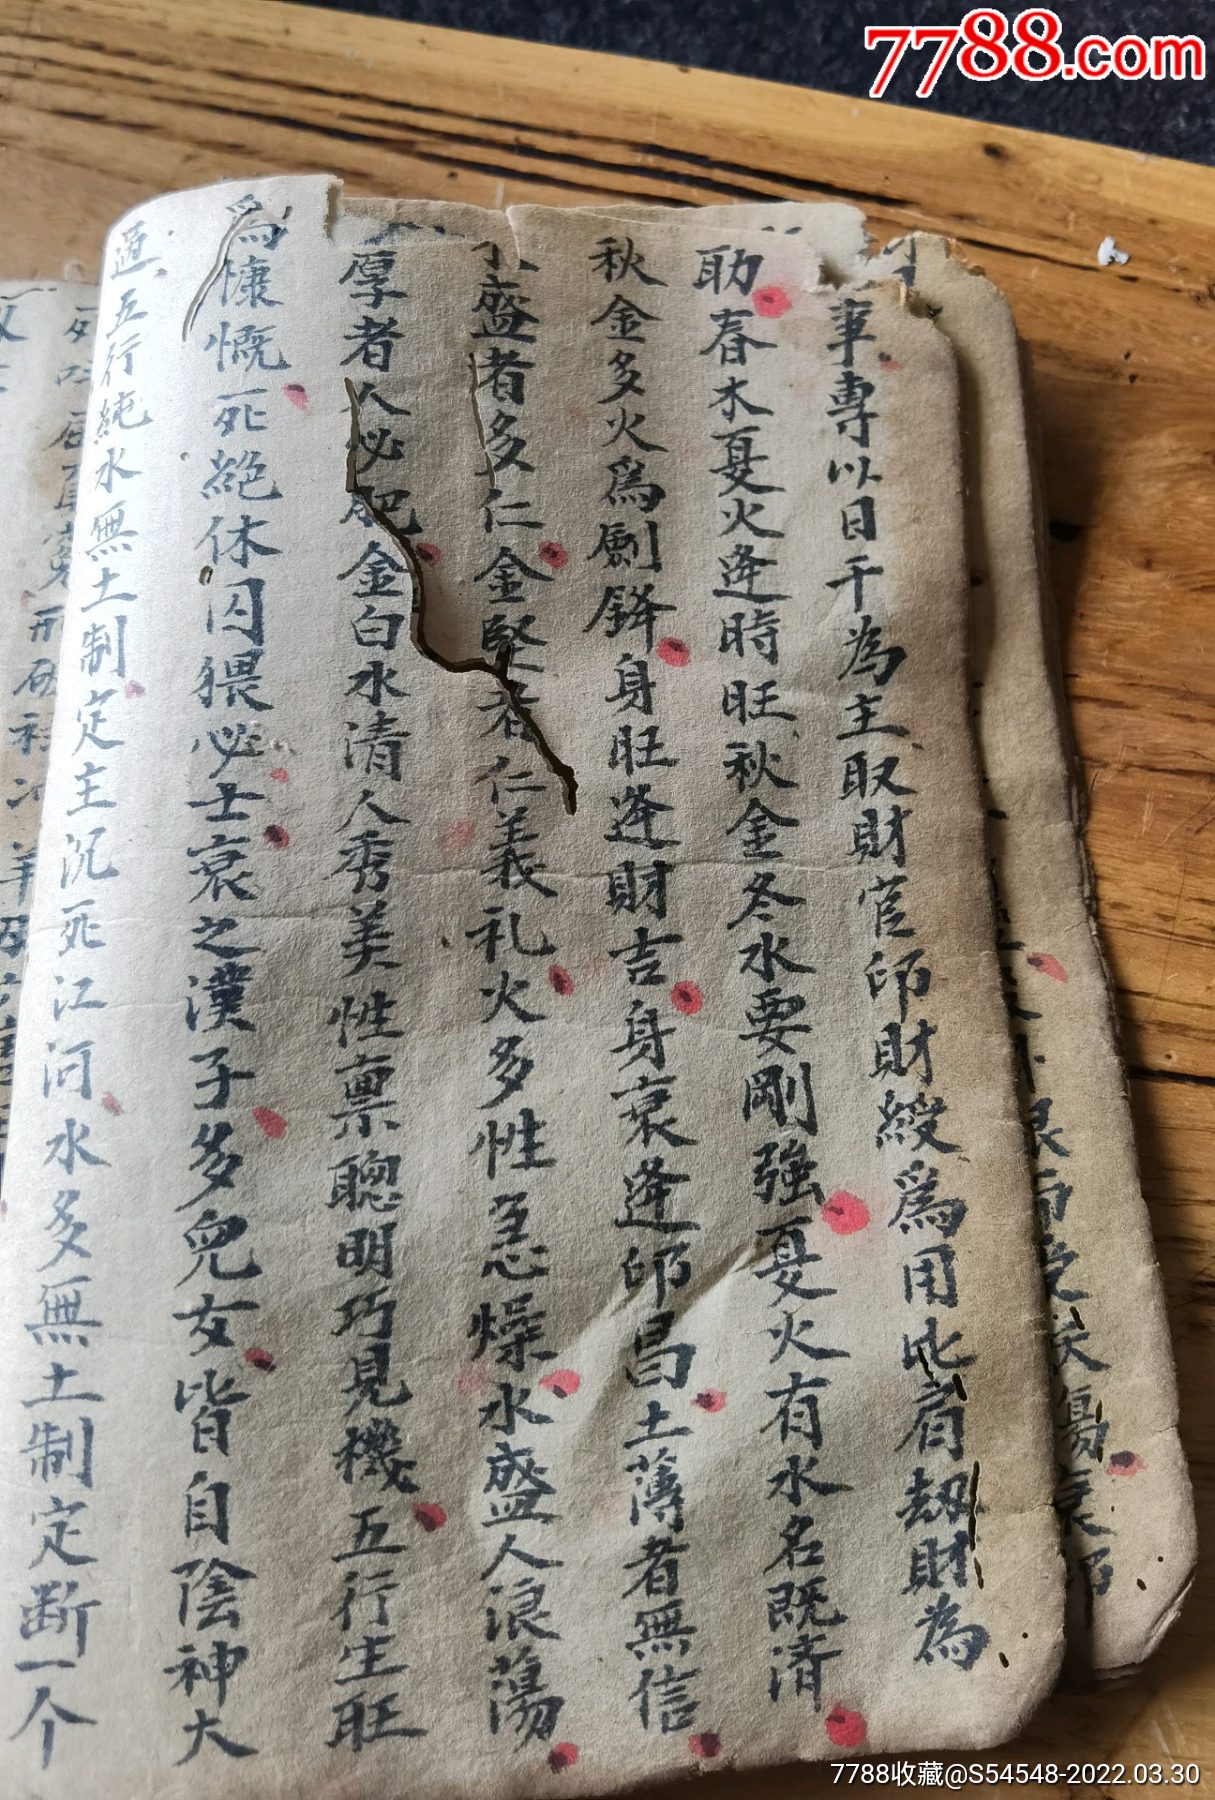 7788.com
事專以日干為主取財官印財綬爲用比肩刼財為
助春木夏火逢時旺秋金冬水要剛強夏火有水名既濟
秋金多火爲劍鋒身旺逢財吉身衰逢印昌土薄者無信
盛者多仁金堅者仁義礼火多性急燥水盛人浪蕩
厚者人必肥金白水清人秀美性禀聰明巧見機五行生旺
爲慷慨死絕休囚猥必士衰之漢子多兒女皆自陰神大
通五行純水無土制定主沉死江河水多無土制定断一个
7788收藏@S54548-2022.03.30